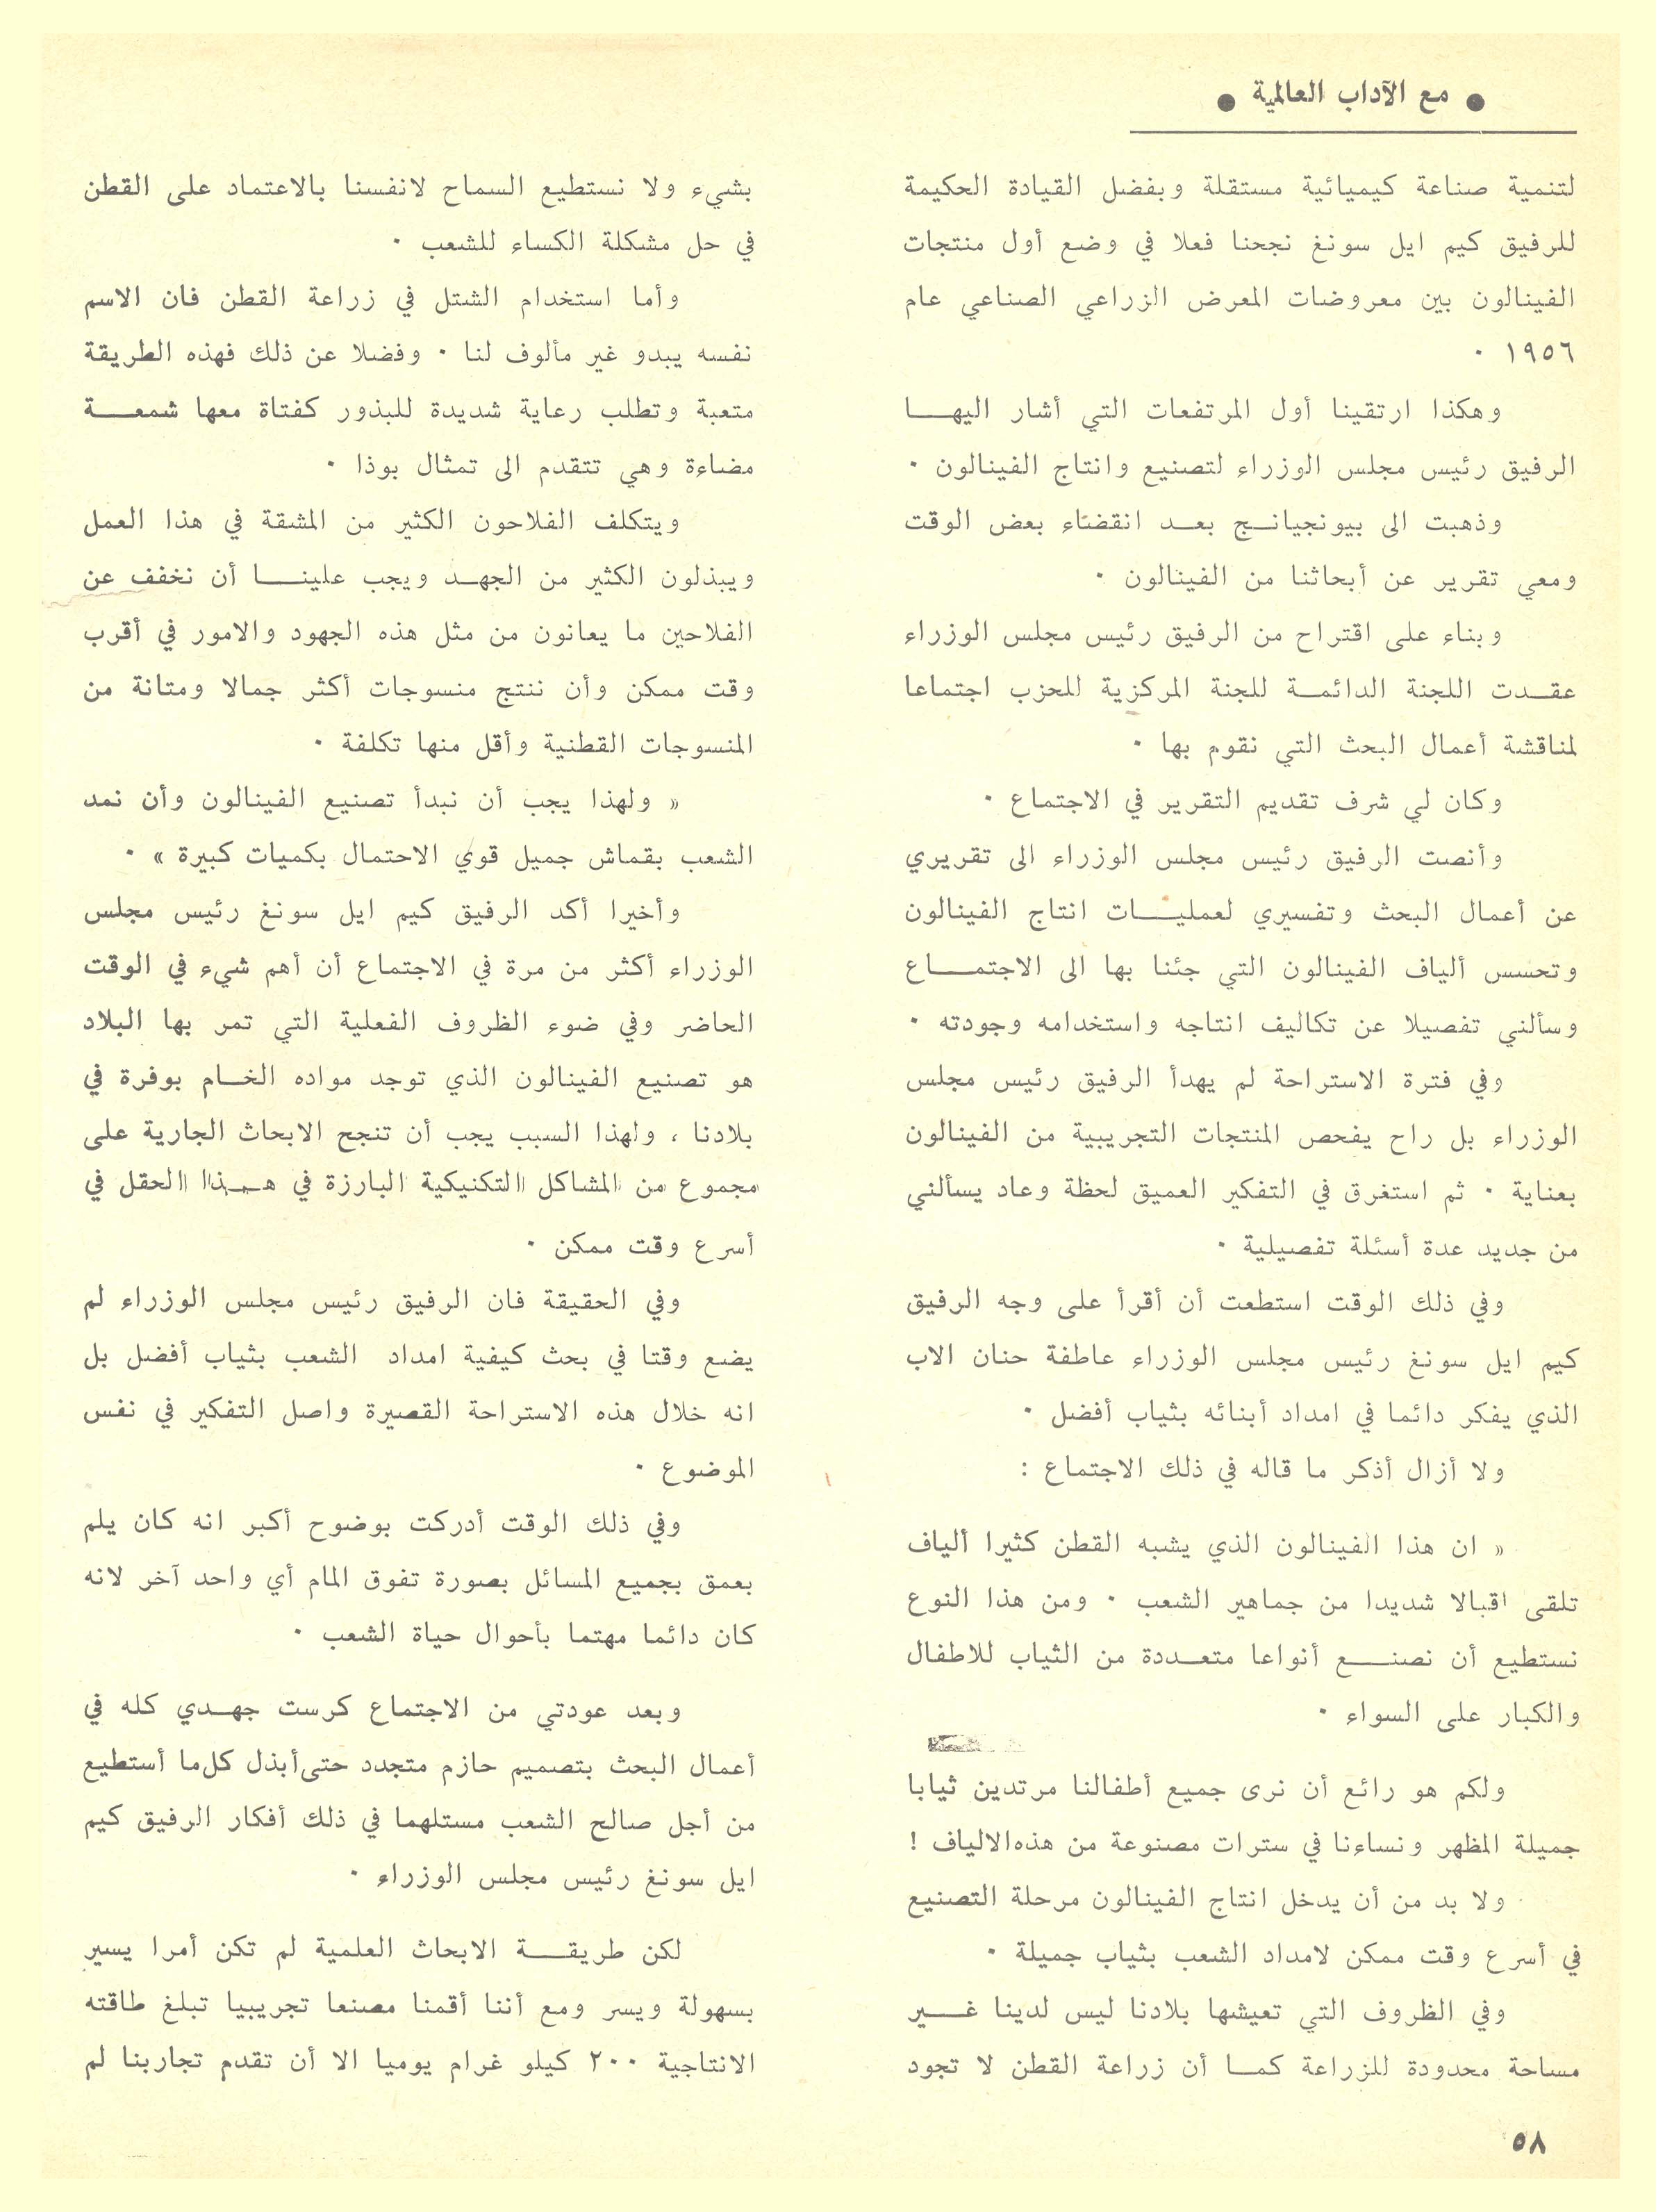 ● مع الآداب العالمية ●
لتنمية صناعة كيميائية مستقلة وبفضل القيادة الحكيمة
للرفيق كيم ايل سونغ نجحنا فعلا في وضع أول منتجات
الفينالون بين معروضات المعرض الزراعي الصناعي عام
١٩٥٦ ٠
وهكذا ارتقينا أول المرتفعات التي أشار اليهــا
الرفيق رئيس مجلس الوزراء لتصنيع وانتاج الفينالون ٠
وذهبت الى بيونجيانـج بعـد انقضاء بعض الوقت
ومعي تقرير عن أبحاثنا من الفينالون ٠
وبناء على اقتراح من الرفيق رئيس مجلس الوزراء
عقـدت اللجنة الدائمـة للجنة المركزية للحزب اجتماعا
لمناقشة أعمال البحث التي نقوم بها ٠
وكان لي شرف تقديم التقرير في الاجتماع ٠
وأنصت الرفيق رئيس مجلس الوزراء الى تقريري
عن أعمال البحث وتفسيري لعمليـــات انتاج الفينالون
وتحسس ألياف الفينالون التي جئنا بها الى الاجتمـــاع
وسألني تفصيلا عن تكاليف انتاجه واستخدامه وجودته ٠
وفي فترة الاستراحة لم يهدأ الرفيق رئيس مجلس
الوزراء بل راح يفحص المنتجات التجريبية من الفينالون
بعناية ٠ ثم استغرق في التفكير العميق لحظة وعاد يسألني
من جديد عدة أسئلة تفصيلية ٠
وفي ذلك الوقت استطعت أن أقرأ على وجه الرفيق
كيم ايل سونغ رئيس مجلس الوزراء عاطفة حنان الاب
الذي يفكر دائما في امداد أبنائه بثياب أفضل ٠
ولا أزال أذكر ما قاله في ذلك الاجتماع :
« ان هذا الفينالون الذي يشبه القطن كثيرا ألياف
تلقى اقبالا شديدا من جماهير الشعب ٠ ومن هذا النوع
نستطيع أن نصنـــع أنواعا متعـددة من الثياب للاطفال
والكبار على السواء ٠
ولكم هو رائع أن نرى جميع أطفالنا مرتدين ثيابا
جميلة المظهر ونساءنا في سترات مصنوعة من هذه الالياف !
ولا بد من أن يدخل انتاج الفينالون مرحلة التصنيع
في أسرع وقت ممكن لامداد الشعب بثياب جميلة ٠
وفي الظروف التي تعيشها بلادنا ليس لدينا غـــير
مساحة محدودة للزراعة كمـا أن زراعة القطن لا تجود
بشيء ولا نستطيع السماح لانفسنا بالاعتماد على القطن
في حل مشكلة الكساء للشعب ٠
وأما استخدام الشتل في زراعة القطن فان الاسم
نفسه يبدو غير مألوف لنا ٠ وفضلا عن ذلك فهذه الطريقة
متعبة وتطلب رعاية شديدة للبذور كفتاة معها شمعـــة
مضاءة وهي تتقدم الى تمثال بوذا ٠
ويتكلف الفلاحون الكثير من المشقة في هذا العمل
ويبذلون الكثير من الجهـد ويجب علينـــا أن نخفف عن
الفلاحين ما يعانون من مثل هذه الجهود والامور في أقرب
وقت ممكن وأن ننتج منسوجات أكثر جمالا ومتانة من
المنسوجات القطنية وأقل منها تكلفة ٠
« ولهذا يجب أن نبدأ تصنيع الفينالون وأن نمد
الشعب بقماش جميل قوي الاحتمال بكميات كبيرة » ٠
وأخيرا أكد الرفيق كيم ايل سونغ رئيس مجلس
الوزراء أكثر من مرة في الاجتماع أن أهم شيء في الوقت
الحاضر وفي ضوء الظروف الفعلية التي تمر بها البلاد
هو تصنيع الفينالون الذي توجد مواده الخـام بوفرة في
بلادنا ، ولهذا السبب يجب أن تنجح الابحاث الجارية على
مجموع من المشاكل التكنيكية البارزة في هـذا الحقل في
أسرع وقت ممكن ٠
وفي الحقيقة فان الرفيق رئيس مجلس الوزراء لم
يضع وقتا في بحث كيفية امداد الشعب بثياب أفضل بل
انه خلال هذه الاستراحة القصيرة واصل التفكير في نفس
الموضوع ٠
وفي ذلك الوقت أدركت بوضوح أكبر انه كان يلم
بعمق بجميع المسائل بصورة تفوق المام أي واحد آخر لانه
كان دائما مهتما بأحوال حياة الشعب ٠
وبعد عودتي من الاجتماع كرست جهـدي كله في
أعمال البحث بتصميم حازم متجدد حتى أبذل كل ما أستطيع
من أجل صالح الشعب مستلهما في ذلك أفكار الرفيق كيم
ايل سونغ رئيس مجلس الوزراء ٠
لكن طريقـــة الابحاث العلمية لم تكن أمرا يسير
بسهولة ويسر ومع أننا أقمنا مصنعا تجريبيا تبلغ طاقته
الانتاجية ٢٠٠ كيلو غرام يوميا الا أن تقدم تجاربنا لم
٥٨